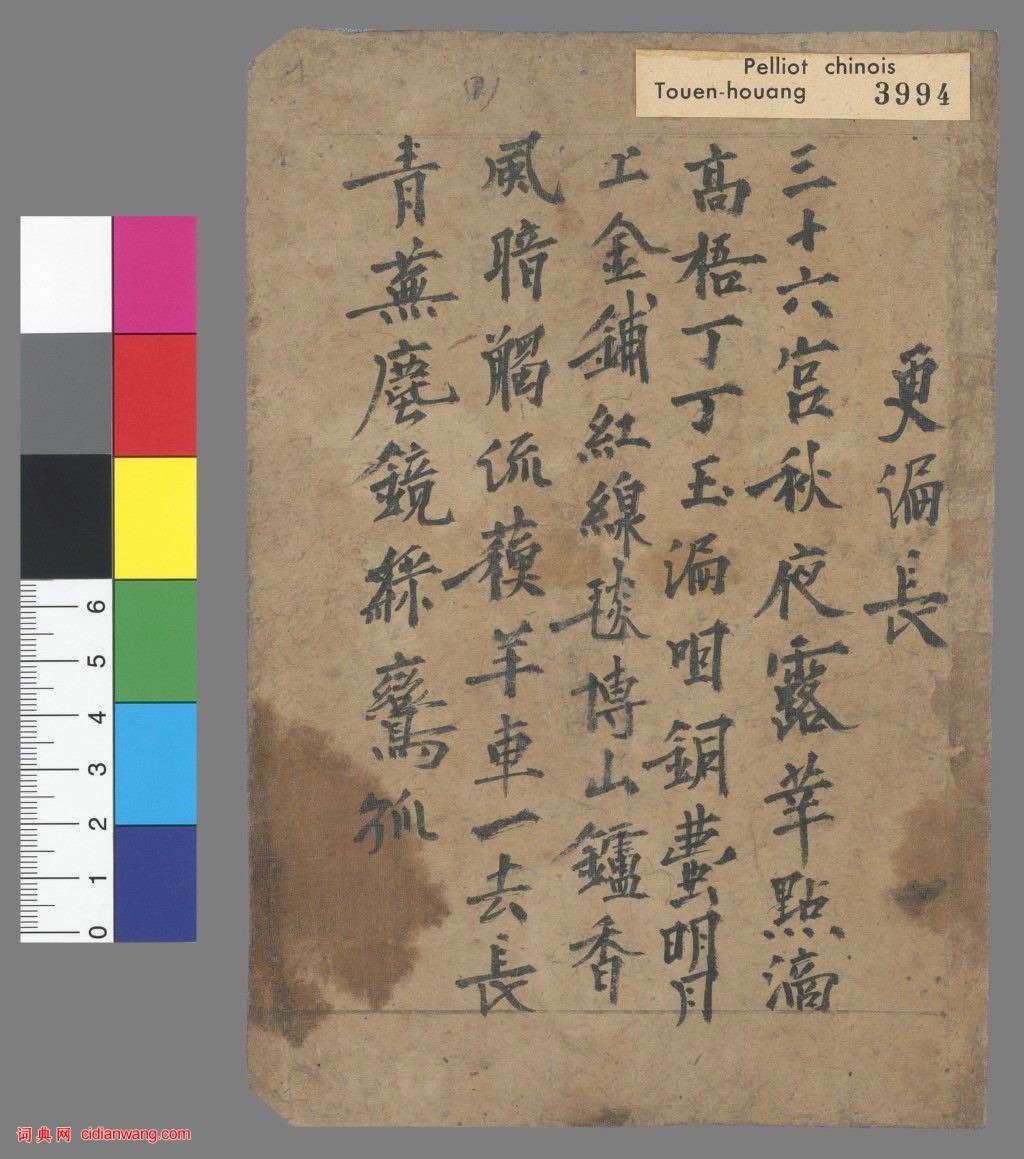 Pelliot chinois
Touen-houang 3994
更漏長
三十六宮秋夜露華點滴
高梧丁丁玉漏咽銅壺明月
上金鋪紅線毯博山鑪香
風暗觸流蘓羊車一去長
青蕪塵鏡綵鸞孤
6
5
4
3
2
1
0
词典网 cidianwang.com